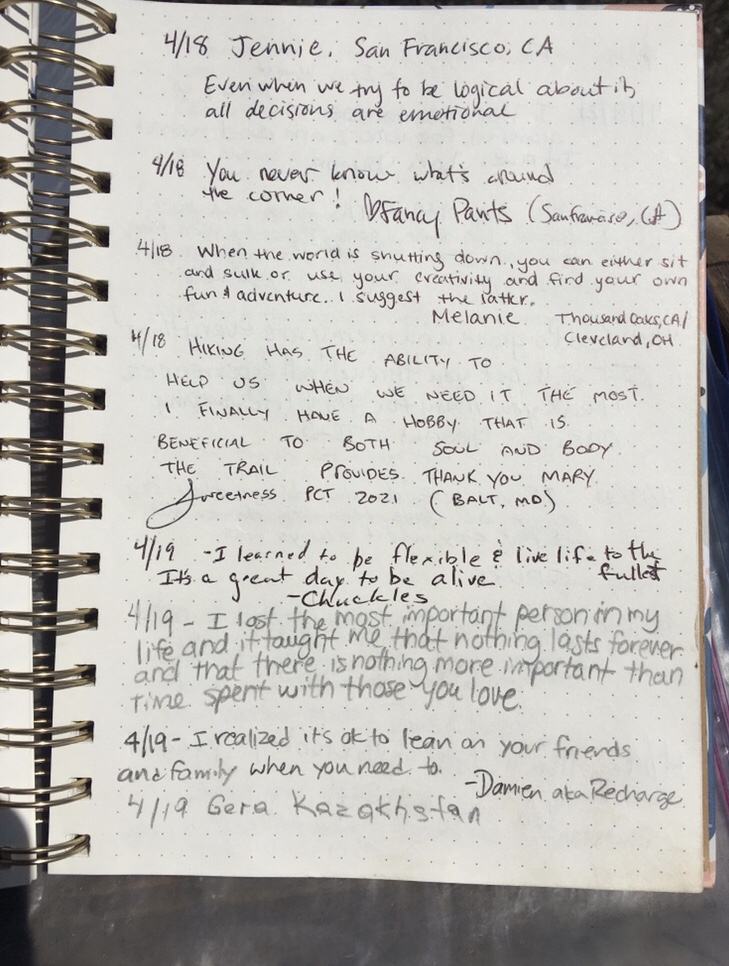 4/18 Jennie, San Francisco, CA
Even when we try to be logical about it,
all decisions are emotional
4/18 You never know what's around
the corner! ♡Fancy Pants (San Francisco, CA)
4/18 When the world is shutting down, you can either sit
and sulk or use your creativity and find your own
fun & adventure. I suggest the latter.
Melanie Thousand Oaks, CA/
Cleveland, OH
4/18 HIKING HAS THE ABILITY TO
HELP US WHEN WE NEED IT THE MOST.
I FINALLY HAVE A HOBBY THAT IS
BENEFICIAL TO BOTH SOUL AND BODY.
THE TRAIL PROVIDES. THANK YOU MARY.
Sweetness PCT 2021 (BALT, MD)
4/19 - I learned to be flexible & live life to the
fullest
It's a great day to be alive
- Chuckles
4/19 - I lost the most important person in my
life and it taught me that nothing lasts forever
and that there is nothing more important than
time spent with those you love.
4/19 - I realized it's ok to lean on your friends
and family when you need to.
- Damien aka Recharge
4/19 Gera Kazakhstan